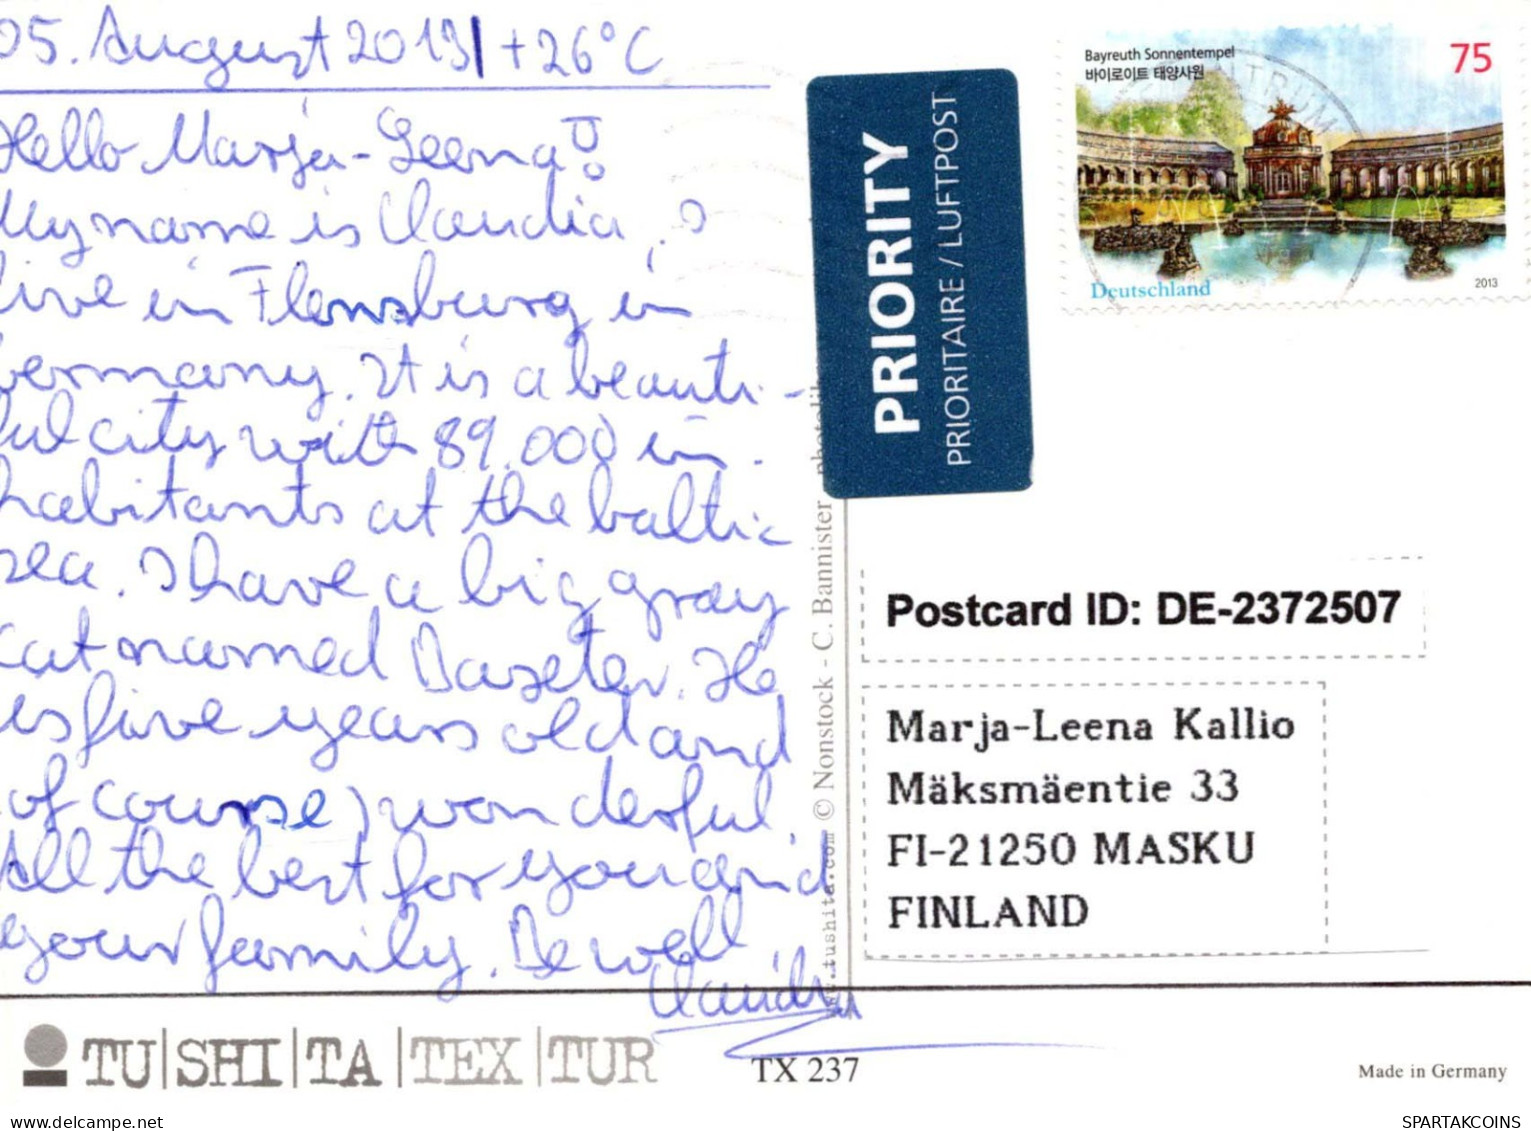 05. August 2013 / +26°C
Hello Marja-Leena!
My name is Claudia, I
live in Flensburg in
Germany. It is a beauti-
ful city with 89.000 in-
habitants at the baltic
sea. I have a big gray
cat named Baxter. He
is five years old and
(of course) wonderful.
All the best for you and
your family. Be well,
Claudia
PRIORITY
PRIORITAIRE / LUFTPOST
Bayreuth Sonnentempel
바이로이트 태양사원
75
Deutschland
2013
Postcard ID: DE-2372507
Marja-Leena Kallio
Mäksmäentie 33
FI-21250 MASKU
FINLAND
www.tushita.com © Nonstock - C. Bannister
TU|SHI|TA|TEX|TUR
TX 237
Made in Germany
SPARTAKCOINS
www.delcampe.net